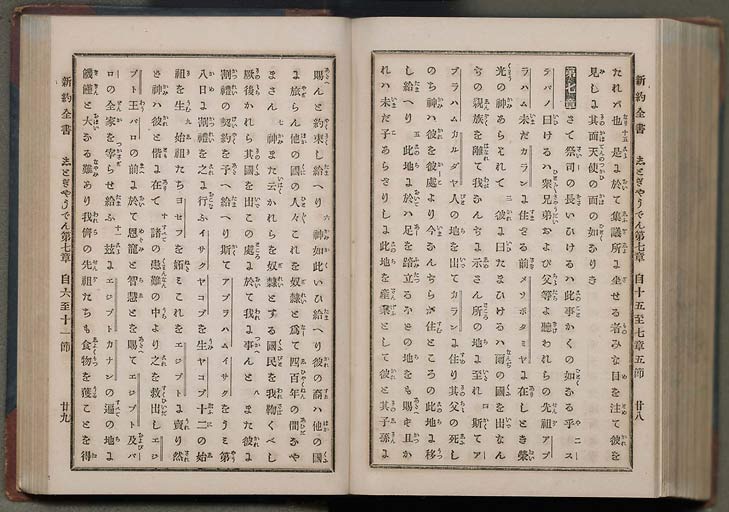 新約全書 志とぎやうでん第七章 自十五至七章五節 廿八
たれバ也 十五 是に於て集議所に坐せる者みな目を注て彼を
見しに其面天使の面の如かりき
第七章 さて祭司の長いひけるハ此事かくの如なる乎 二 ス
テパノ曰けるハ衆兄弟および父等よ聽われらの先祖アブ
ラハム未だカランに住ざる前メソポタミヤに在しとき榮
光の神あらはれて 三 彼に曰たまひけるハ爾の國を出なん
ぢの親族を離て我なんぢに示さん所の地に至れ 四 斯てア
ブラハムカルダヤ人の地を出てカランに住り其父の死し
のち神ハ彼を彼處より今なんぢらが住ところの此地に移
し給へり 五 此地に於ハ足を踏立るほどの地をも賜ず且か
れハ未だ子あらざりしに此地を産業として彼と其子孫に
賜んと約束し給へり 六 神如此いひ給へり彼の裔ハ他の國
に旅らん他の國の人々これを奴隷と爲て四百年の間なや
まさん 七 神また云かれらを奴隷とする國民を我鞫くべし
厥後かれら其國を出この處に於て我に事んと 八 また彼に
割禮の契約を予へ給へり斯てアブラハムイサクをうミ第
八日に割禮を之に行ふイサクヤコブを生ヤコブ十二の始
祖を生 九 始祖たちヨセフを妬ミこれをエジプトに賣り然
ど神ハ彼と偕に在て 十 諸の患難の中より之を救出しエジ
プト王パロの前に於て恩寵と智慧とを賜てエジプト及パ
ロの全家を宰らせ給ふ 十一 玆にエジプトカナンの遍の地に
饑饉と大なる難あり我儕の先祖たちも食物を獲ことを得
新約全書 志とぎやうでん第七章 自六至十一節 廿九